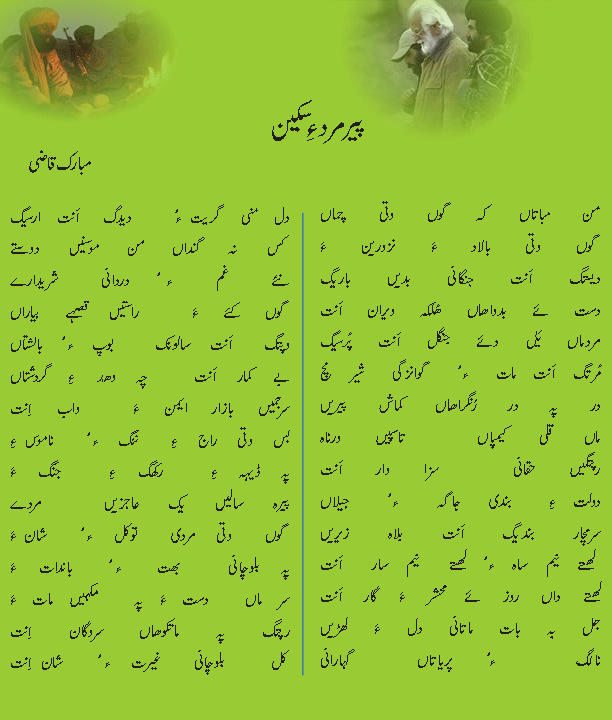 پیرمردءِ سکین
مبارک قاضی
من مباتاں کہ گوں وتی چماں
گوں وتی بالاد ءَ نزدرین ءَ
دیستگ اَنت جنگانی بدیں باریگ
دست ئے بدواھاں ھُلکہ ویران اَنت
مردماں یَلّی دئے جنگل اَنت پُرسیگ
مُرتگ اَنت مات ءُ گوانزگی شیر مچ
در پہ در رُنگراھاں کماش پیریں
ماں قلی کیمپاں تاسپیں درناہ
رپتگیں حقانی سزا دار اَنت
دولت ءِ بندی جاگہ ءُ جیلاں
سرمچار بندیگ اَنت بلاہ زبریں
لھتے نیم ساہ ءُ لھتے نیم سار اَنت
لھتے داں روز ئے محشر ءَ گار اَنت
جل بہ بات ماتانی دل ءَ لھڑیں
نالگ ءُ پریاتاں گہارانی
دل منی گریت ءُ دیدگ اَنت ارسیگ
کس نہ گنداں من موسنیں دوستے
نئے غم ءُ دردانی شریدارے
گوں کئے ءَ راستیں قصہے بیاراں
وپتگ اَنت سالونک بوپ ءُ بالشتاں
بے کمار اَنت چہ دھر ءِ گردشتاں
سرجمیں بازار ایمن ءَ واب اِنت
بس وتی راج ءِ ننگ ءُ ناموس ءِ
پہ ڈیہہ ءِ رکھگ ءِ جنگ ءَ
پیرہ سالیں یک عاجزیں مردے
گوں وتی مردی توکل ءُ شان ءَ
پہ بلوچانی بھت ءُ باندات ءَ
سر ماں دست ءَ پہ مکہیں مات ءَ
رپتگ پہ ماتکوھاں سردگان اِنت
کل بلوچانی غیرت ءُ شان اِنت